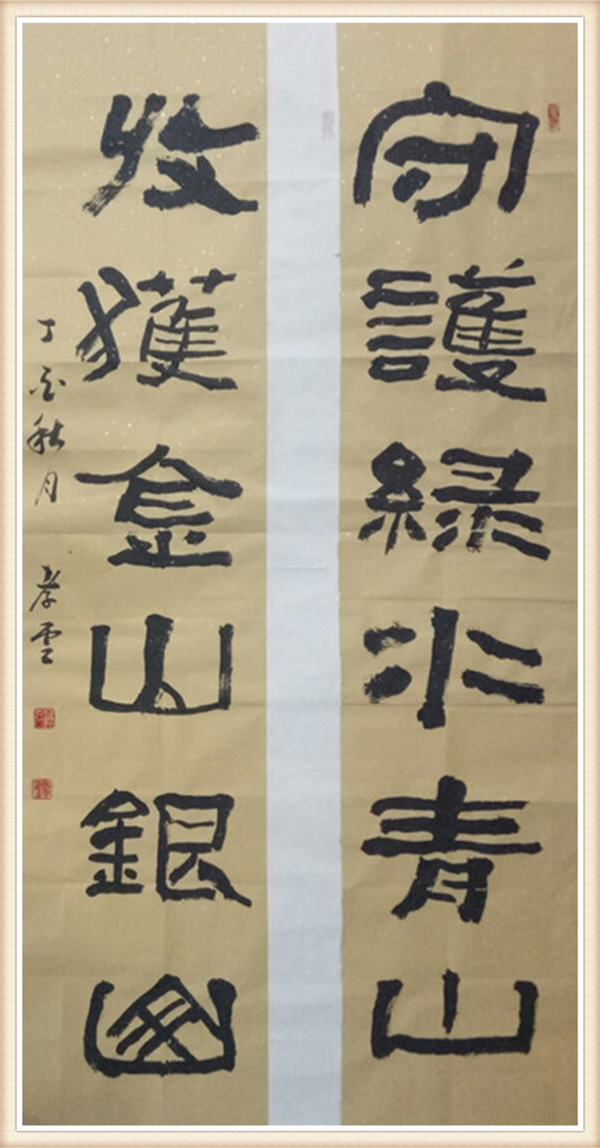 守護綠水青山
收獲金山銀山
丁酉秋月